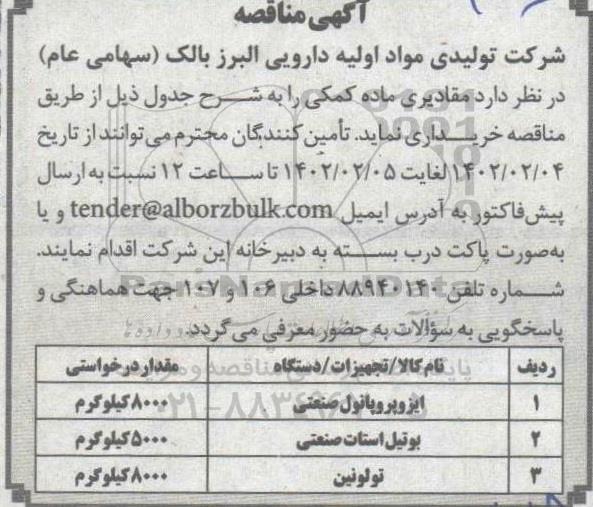 آگهی مناقصه
شرکت تولیدی مواد اولیه دارویی البرز بالک (سهامی عام)
در نظر دارد مقادیری ماده کمکی را به شرح جدول ذیل از طریق
مناقصه خریداری نماید. تأمین کنندگان محترم می توانند از تاریخ
۱۴۰۲/۰۲/۰۴ لغایت ۱۴۰۲/۰۲/۰۵ تا ساعت ۱۲ نسبت به ارسال
پیش فاکتور به آدرس ایمیل tender@alborzbulk.com و یا
به‌صورت پاکت درب بسته به دبیرخانه این شرکت اقدام نمایند.
شماره تلفن ۸۸۹۴۰۱۴۰ داخلی ۱۰۶ و ۱۰۷ جهت هماهنگی و
پاسخگویی به سؤالات به حضور معرفی می گردد.
ردیف نام کالا/تجهیزات/دستگاه مقدار درخواستی
۱ ایزوپروپانول صنعتی ۸۰۰۰ کیلوگرم
۲ بوتیل استات صنعتی ۵۰۰۰ کیلوگرم
۳ تولوئین ۸۰۰۰ کیلوگرم